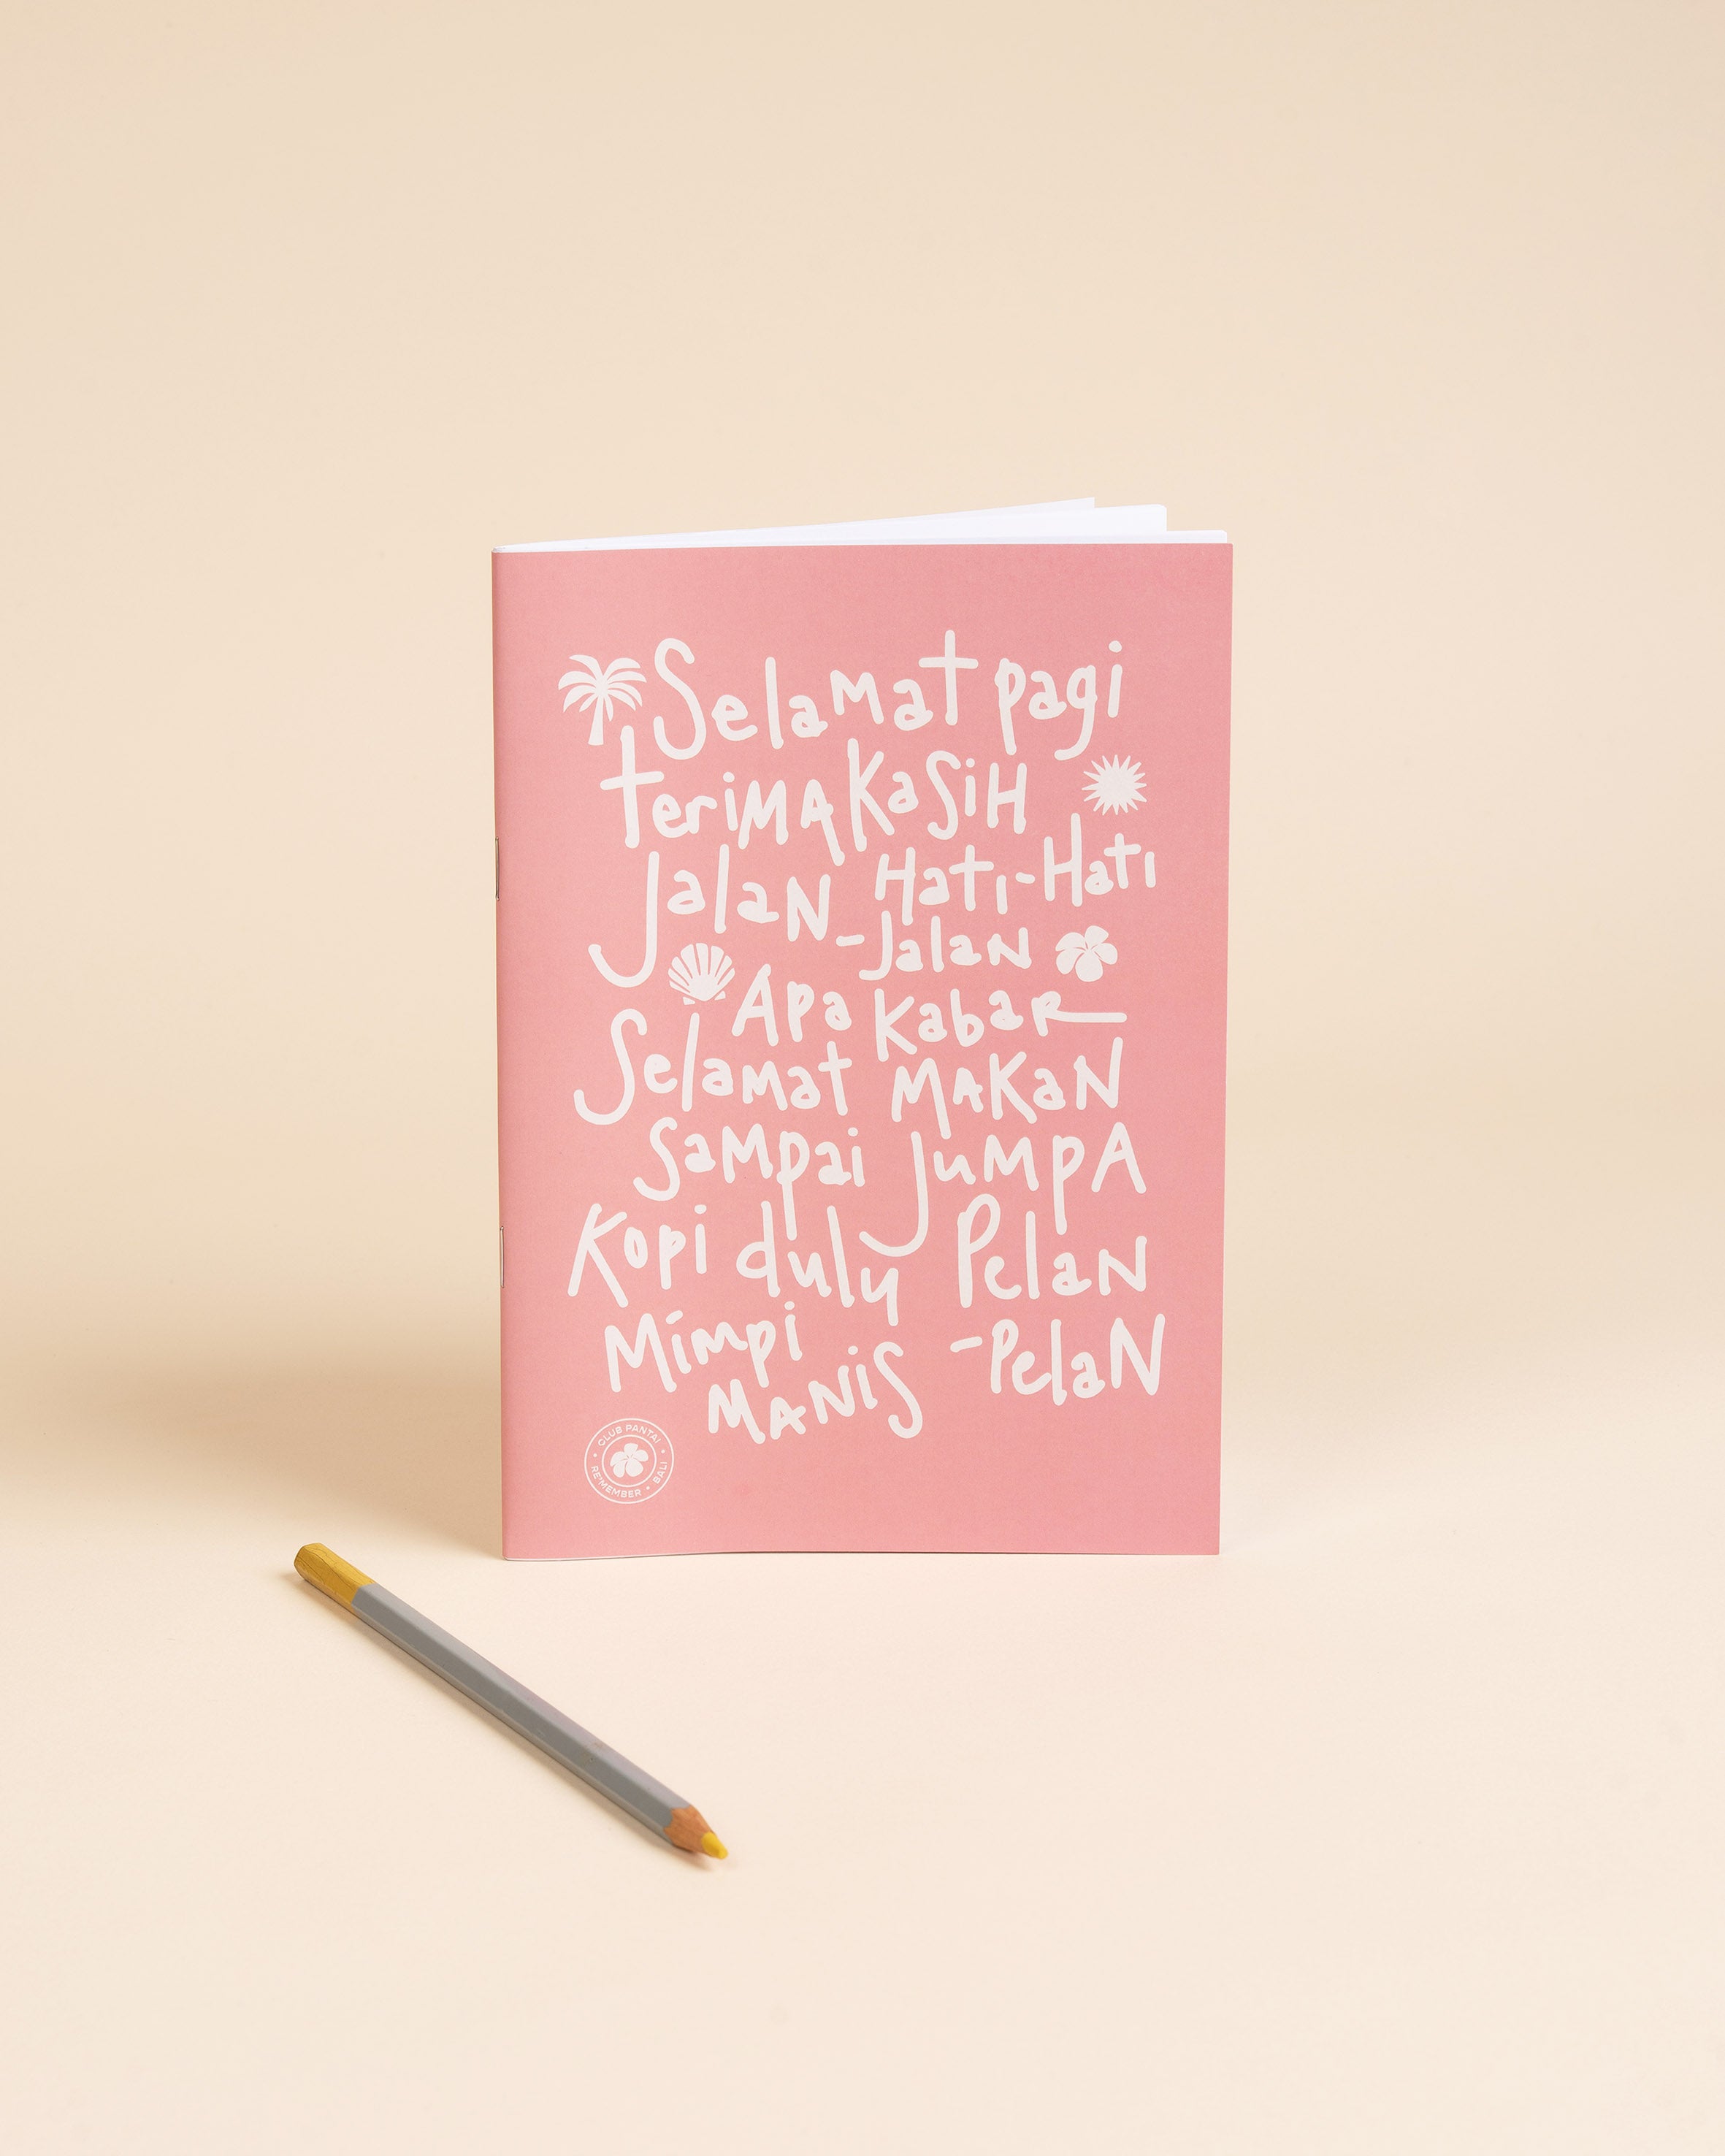 Selamat pagi
terimaKaSiH
JalaN Hati-Hati
-JalaN
Apa KabaR
Selamat MAKaN
SaMpai JuMpA
Kopi duly PelaN
Mimpi -PelaN
MANiS
CLUB PANTAI • BALI • RE'MEMBER •